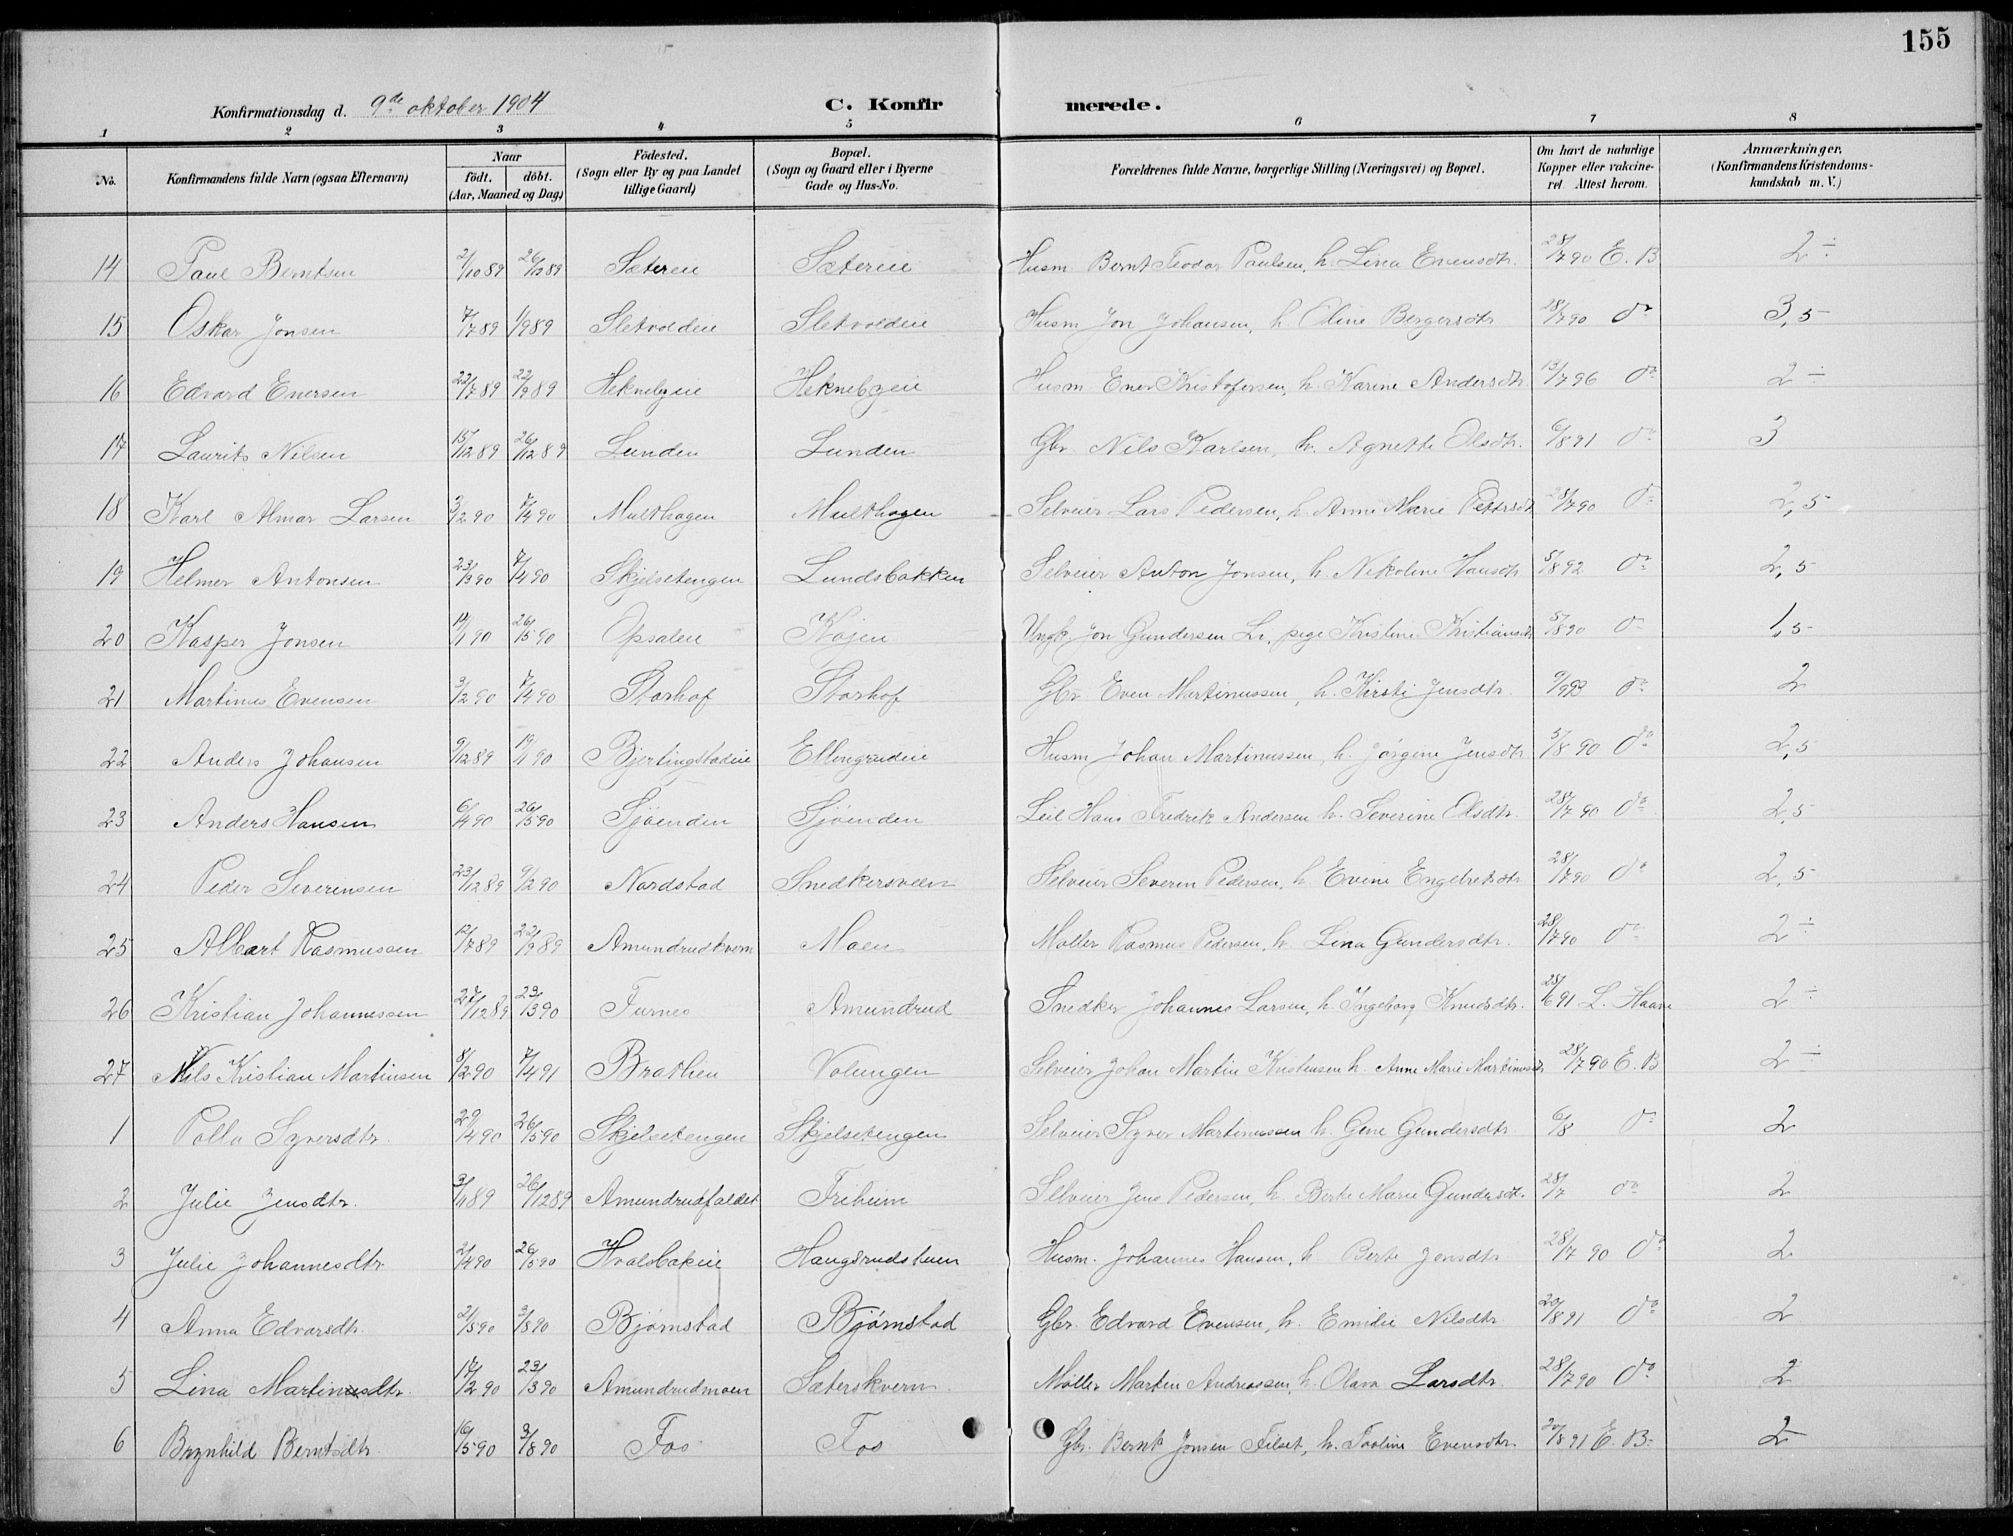 155
Konfirmationsdag d. 9de oktober 1904 C. Konfirmerede.
1 2 3 4 5 6 7 8
No. Konfirmandens fulde Navn (ogsaa Efternavn) Naar født. døbt. (Aar, Maaned og Dag) Fødested. (Sogn eller By og paa Landet tillige Gaard) Bopæl. (Sogn og Gaard eller i Byerne Gade og Hus-No. Forældrenes fulde Navne, borgerlige Stilling (Næringsvei) og Bopæl. Om havt de naturlige Kopper eller vakcineret. Attest herom. Anmærkninger. (Konfirmandens Kristendomskundskab m. V.)
14 Paul Berntsen 2/10 89 26/12 89 Sætereie Sætereie Husm. Bernt Teodor Paulsen, h. Lina Evensdtr. 28/7 90 E. B 2 ÷
15 Oskar Jonsen 7/7 89 1/9 89 Sletvoldeie Sletvoldeie Husm Jon Johansen, h. Eline Bergersdtr 28/7 90 do 3,5
16 Edvard Enersen 22/7 89 22/9 89 Heknebyeie Heknebyeie Husm Ener Kristofersen, h. Karine Andersdtr 13/7 96 do 2 ÷
17 Laurits Nilsen 15/12 89 26/12 89 Lunden Lunden Gbr. Nils Karlsen, h. Agnette Olsdtr. 6/8 91 do 3
18 Karl Almar Larsen 3/2 90 7/4 90 Multhagen Multhagen Selveier Lars Pedersen, h. Anne Marie Pettersdtr 28/7 90 do 2,5
19 Helmer Antonsen 23/3 90 7/4 90 Skjelsetengen Lundsbakken Selveier Anton Jonsen, h. Nikoline Hansdtr 5/8 92 do 2,5
20 Kasper Jonsen /1 90 26/5 90 Opsaleie Kojen Ungk. Jon Gundersen Lr, pige Kristine Kristiansdtr 5/8 90 do 1,5
21 Martinus Evensen 3/2 90 7/4 90 Storhof Storhof Gbr. Even Martinussen, h. Kirsti Jensdtr. 9/9 93 do 2
22 Anders Johansen 9/12 89 19/1 90 Bjertingstadeie Ellingrudeie Husm Johan Martinussen, h. Jørgine Jensdtr 5/8 90 do 2,5
23 Anders Hansen 6/4 90 26/5 90 Sjøenden Sjøenden Leil Hans Fredrik Andersen h. Severine Olsdtr. 28/7 90 do 2,5
24 Peder Severinsen 23/12 89 9/2 90 Nordstad Snedkersveen Selveier Severin Pedersen, h. Evine Engebretsdtr 28/7 90 do 2,5
25 Albert Rasmussen 12/7 89 22/9 89 Amundrudkvern Moen Møller Rasmus Pedersen, h. Lina Gundersdtr. 28/7 90 do 2 ÷
26 Kristian Johannessen 27/12 89 23/3 90 Furnes Amundrud Snedker Johannes Larsen, h. Ingeborg Knudsdtr. 23/6 91 L. Haave 2 ÷
27 Nils Kristian Martinsen 8/2 90 7/4 91 Brathen Volungen Selveier Johan Martin Kristensen h. Anne Marie Martinusdtr 28/7 90 E. B 2 ÷
1 Polla Syversdtr. 29/4 90 26/5 90 Skjelsetengen Skjelsetengen Selveier Syver Martinussen h. Gine Gundersdtr 6/8 do 2
2 Julie Jensdtr. 3/11 89 26/12 89 Amundrudfaldet Friheim Selveier Jens Pedersen, h. Berte Marie Gundersdtr. 28/7 do 2
3 Julie Johannesdtr. 2/4 90 26/5 90 Hvalsbakeie Haugsrudstuen Husm. Johannes Hansen, h Berte Jonsdtr 28/7 90 do 2
4 Anna Edvarsdtr. 2/5 90 3/8 90 Bjørnstad Bjørnstad Gbr. Edvard Evensen, h. Emilie Nilsdtr 20/8 91 do 2
5 Lina Martinusdtr. 17/2 90 23/3 90 Amundrudmoen Sæterskvern Møller Martin Andreassen, h. Olava Larsdtr. 28/7 90 do 2
6 Brynhild Berntsdtr. 16/5 90 3/8 90 Fos Fos Gbr. Bernt Jonsen Filset, h. Taaline Evensdtr. 20/8 91 E. B. 2